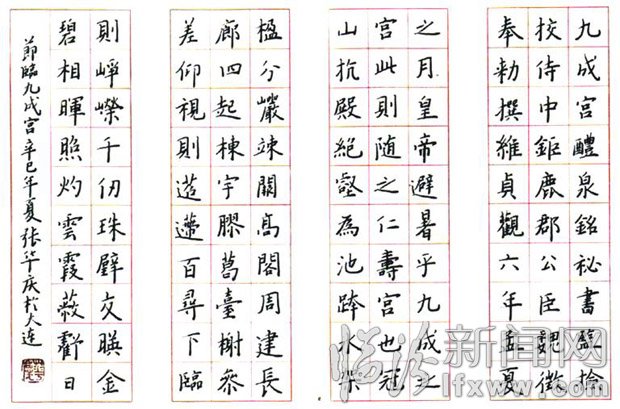 九成宮醴泉銘祕書監檢
挍侍中鉅鹿郡公臣魏徵
奉勑撰維貞觀六年孟夏
之月皇帝避暑乎九成之
宮此則随之仁壽宮也冠
山抗殿絕壑為池跨水架
楹分巖竦闕高閣周建長
廊四起棟宇膠葛臺榭叅
差仰視則迢遰百尋下臨
則崢嶸千仞珠璧交暎金
碧相暉照灼雲霞蔽虧日
節臨九成宮辛巳年夏张华庆於大連
临汾新闻网
lfxww.com